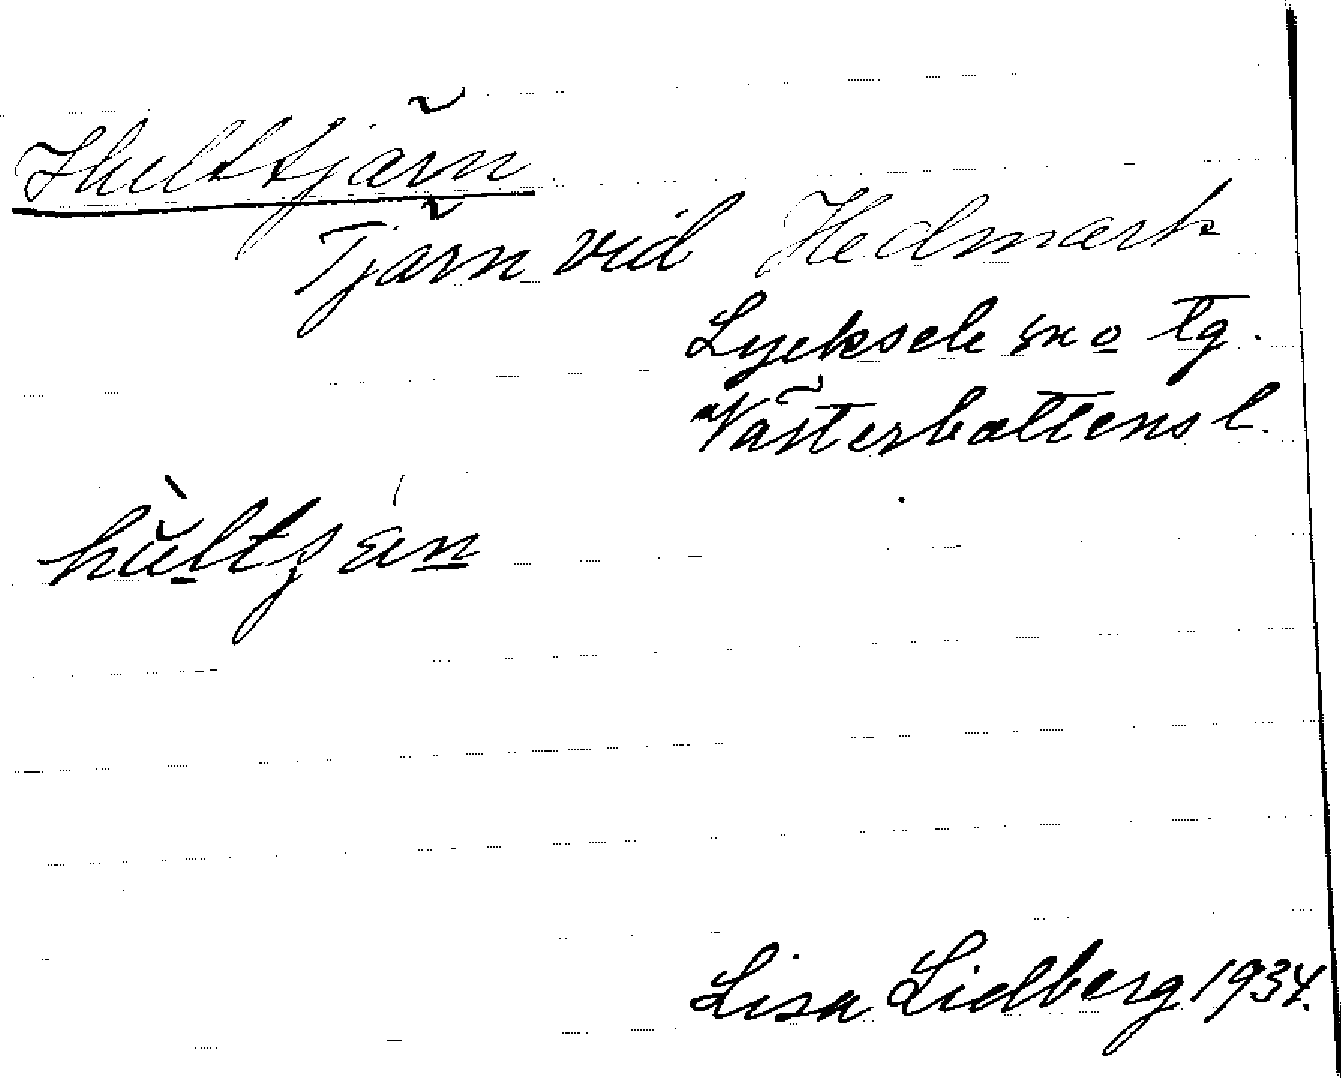 Hulttjärn
Tjärn vid Hedmark
Lycksele sn o tg.
Västerbottens l.
hultjän
Lisa Lidberg 1934.